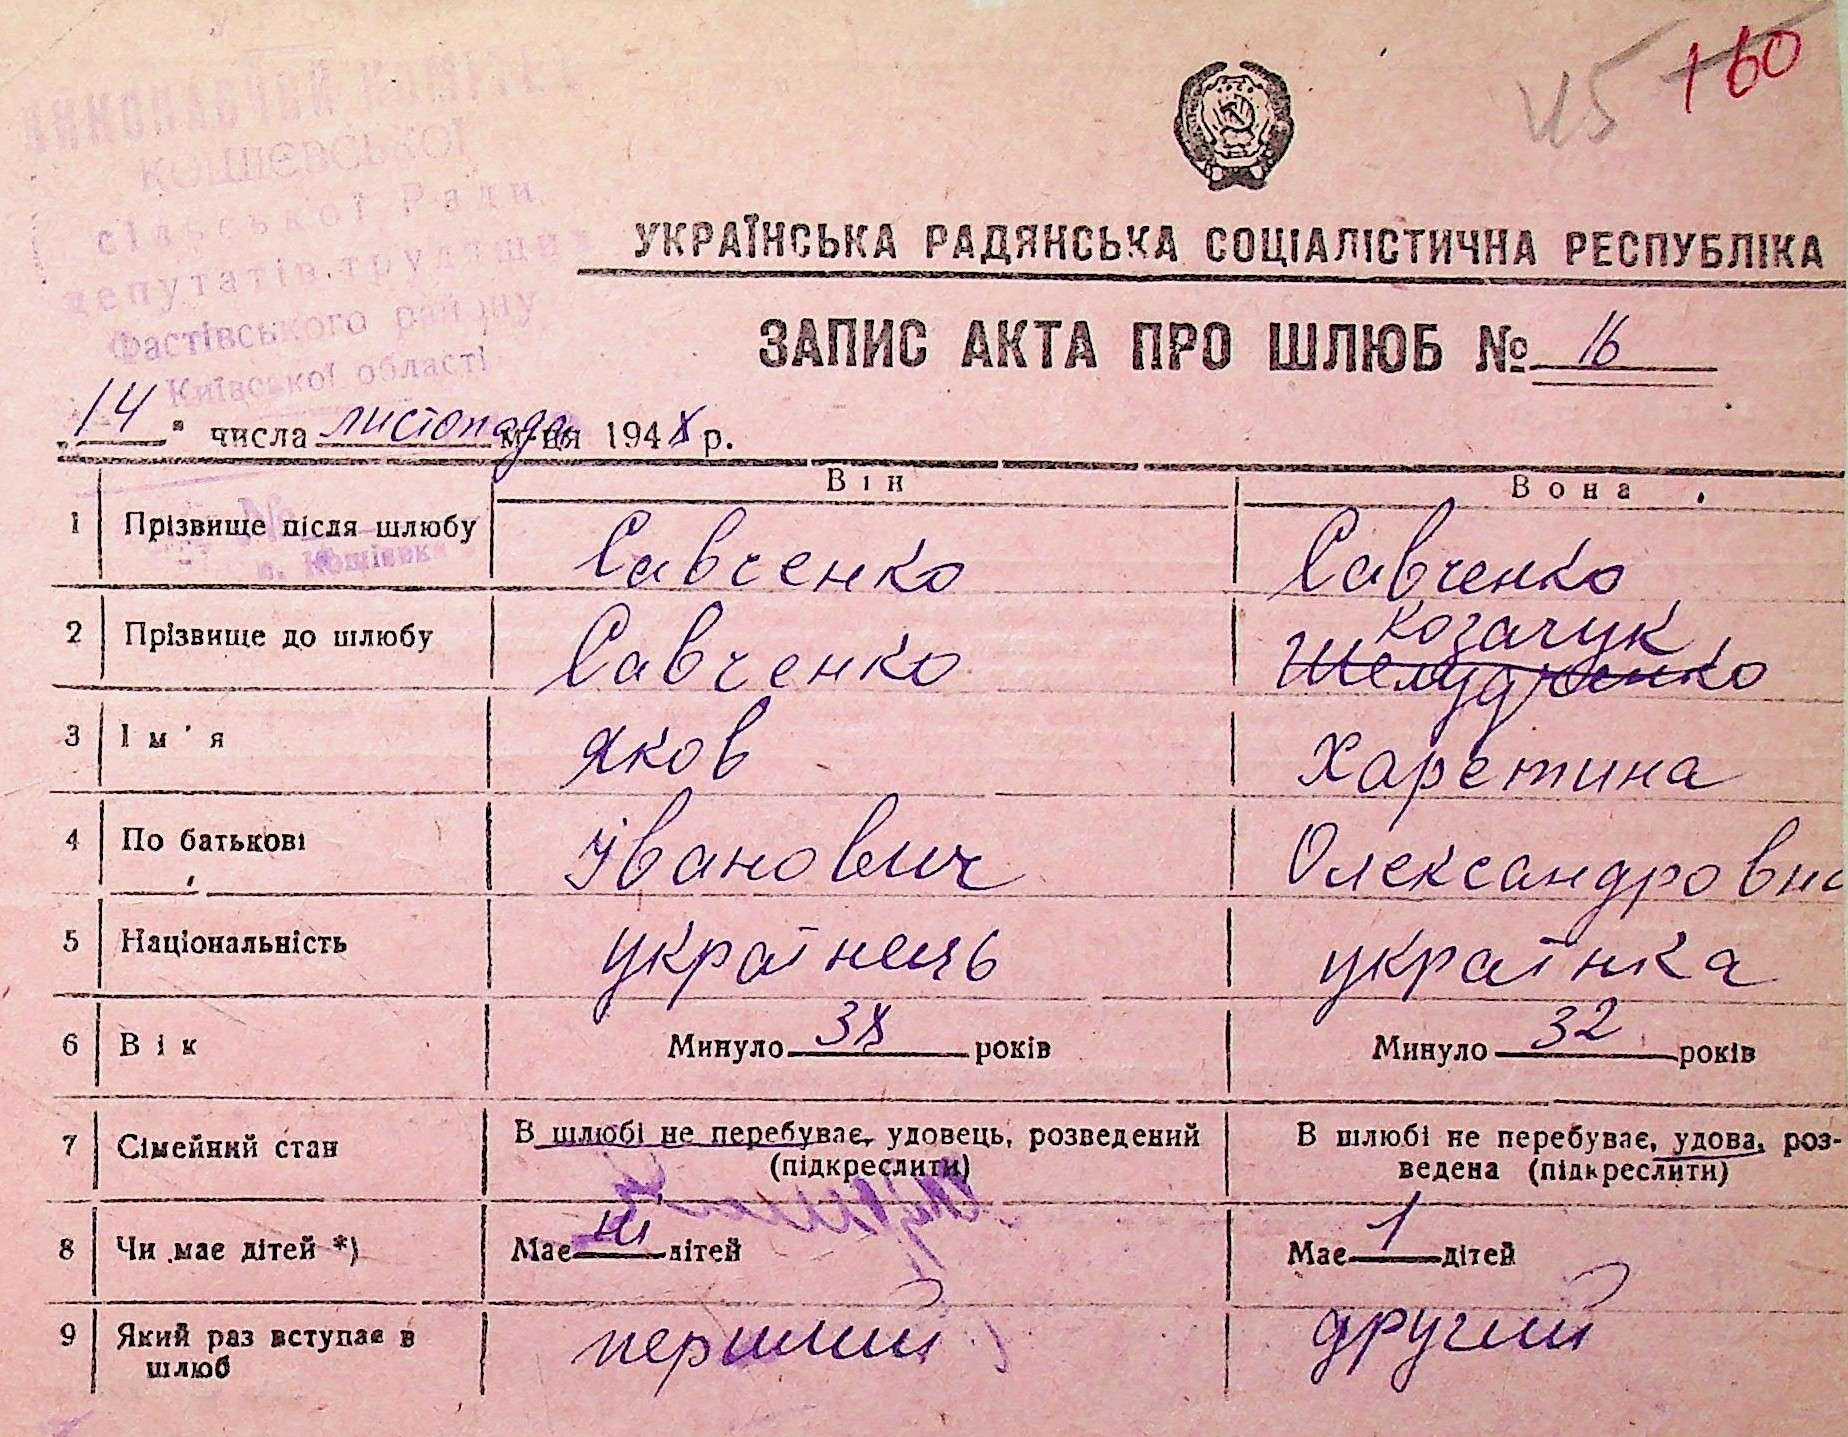 160
45
ВИКОНАВЧИЙ КОМІТЕТ
КОЩІЄВСЬКОЇ
сільської Ради
депутатів трудящих
Фастівського району
Київської області
УКРАЇНСЬКА РАДЯНСЬКА СОЦІАЛІСТИЧНА РЕСПУБЛІКА
ЗАПИС АКТА ПРО ШЛЮБ № 16
„14" числа листопада м-ця 1948 р.
№
с. Кощіївка
Він Вона
1 Прізвище після шлюбу Савченко Савченко
Козачук
2 Прізвище до шлюбу Савченко Шелудченко
3 Ім'я Яков Харетина
4 По батькові Іванович Олександровна
5 Національність українець українка
6 Вік Минуло 38 років Минуло 32 років
7 Сімейний стан В шлюбі не перебуває, удовець, розведений В шлюбі не перебуває, удова, роз-
(підкреслити) ведена (підкреслити)
8 Чи має дітей *) Має ні дітей Має 1 дітей
9 Який раз вступає в перший другий
шлюб